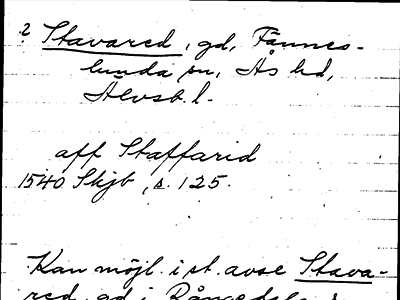 ? Stavared, gd, Fännes-
lunda sn, Ås hd,
Älvsb. l.
aff Staffarid
1540 Skjb, s. 125.
Kan möjl. i st. avse Stava-
red, gd i